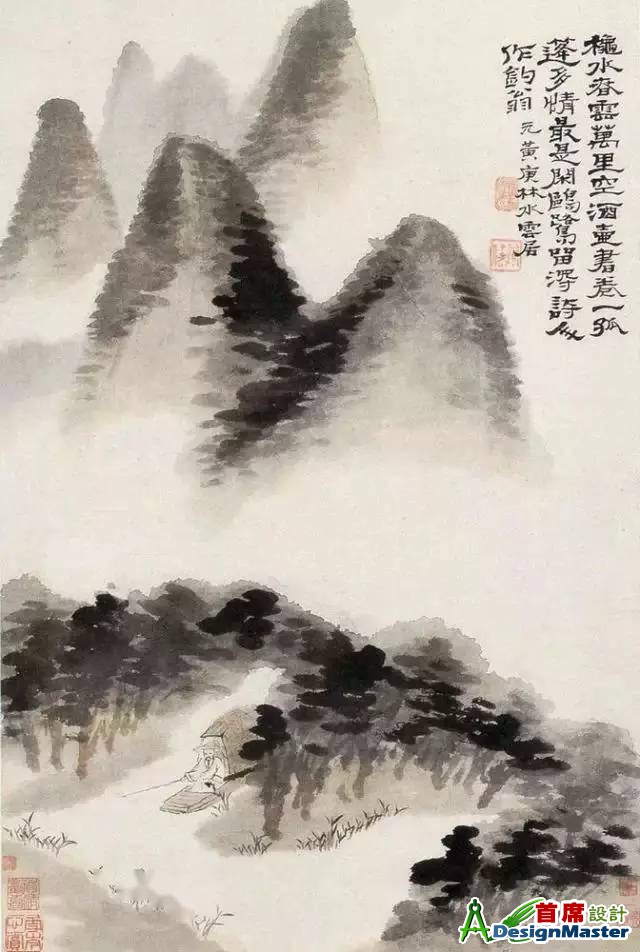 穐水春雲萬里空酒壺書卷一孤
篷多情最是閑鷗鷺留得詩人
作釣翁 元黃庚林水雲居
首席設計
ADesignMaster